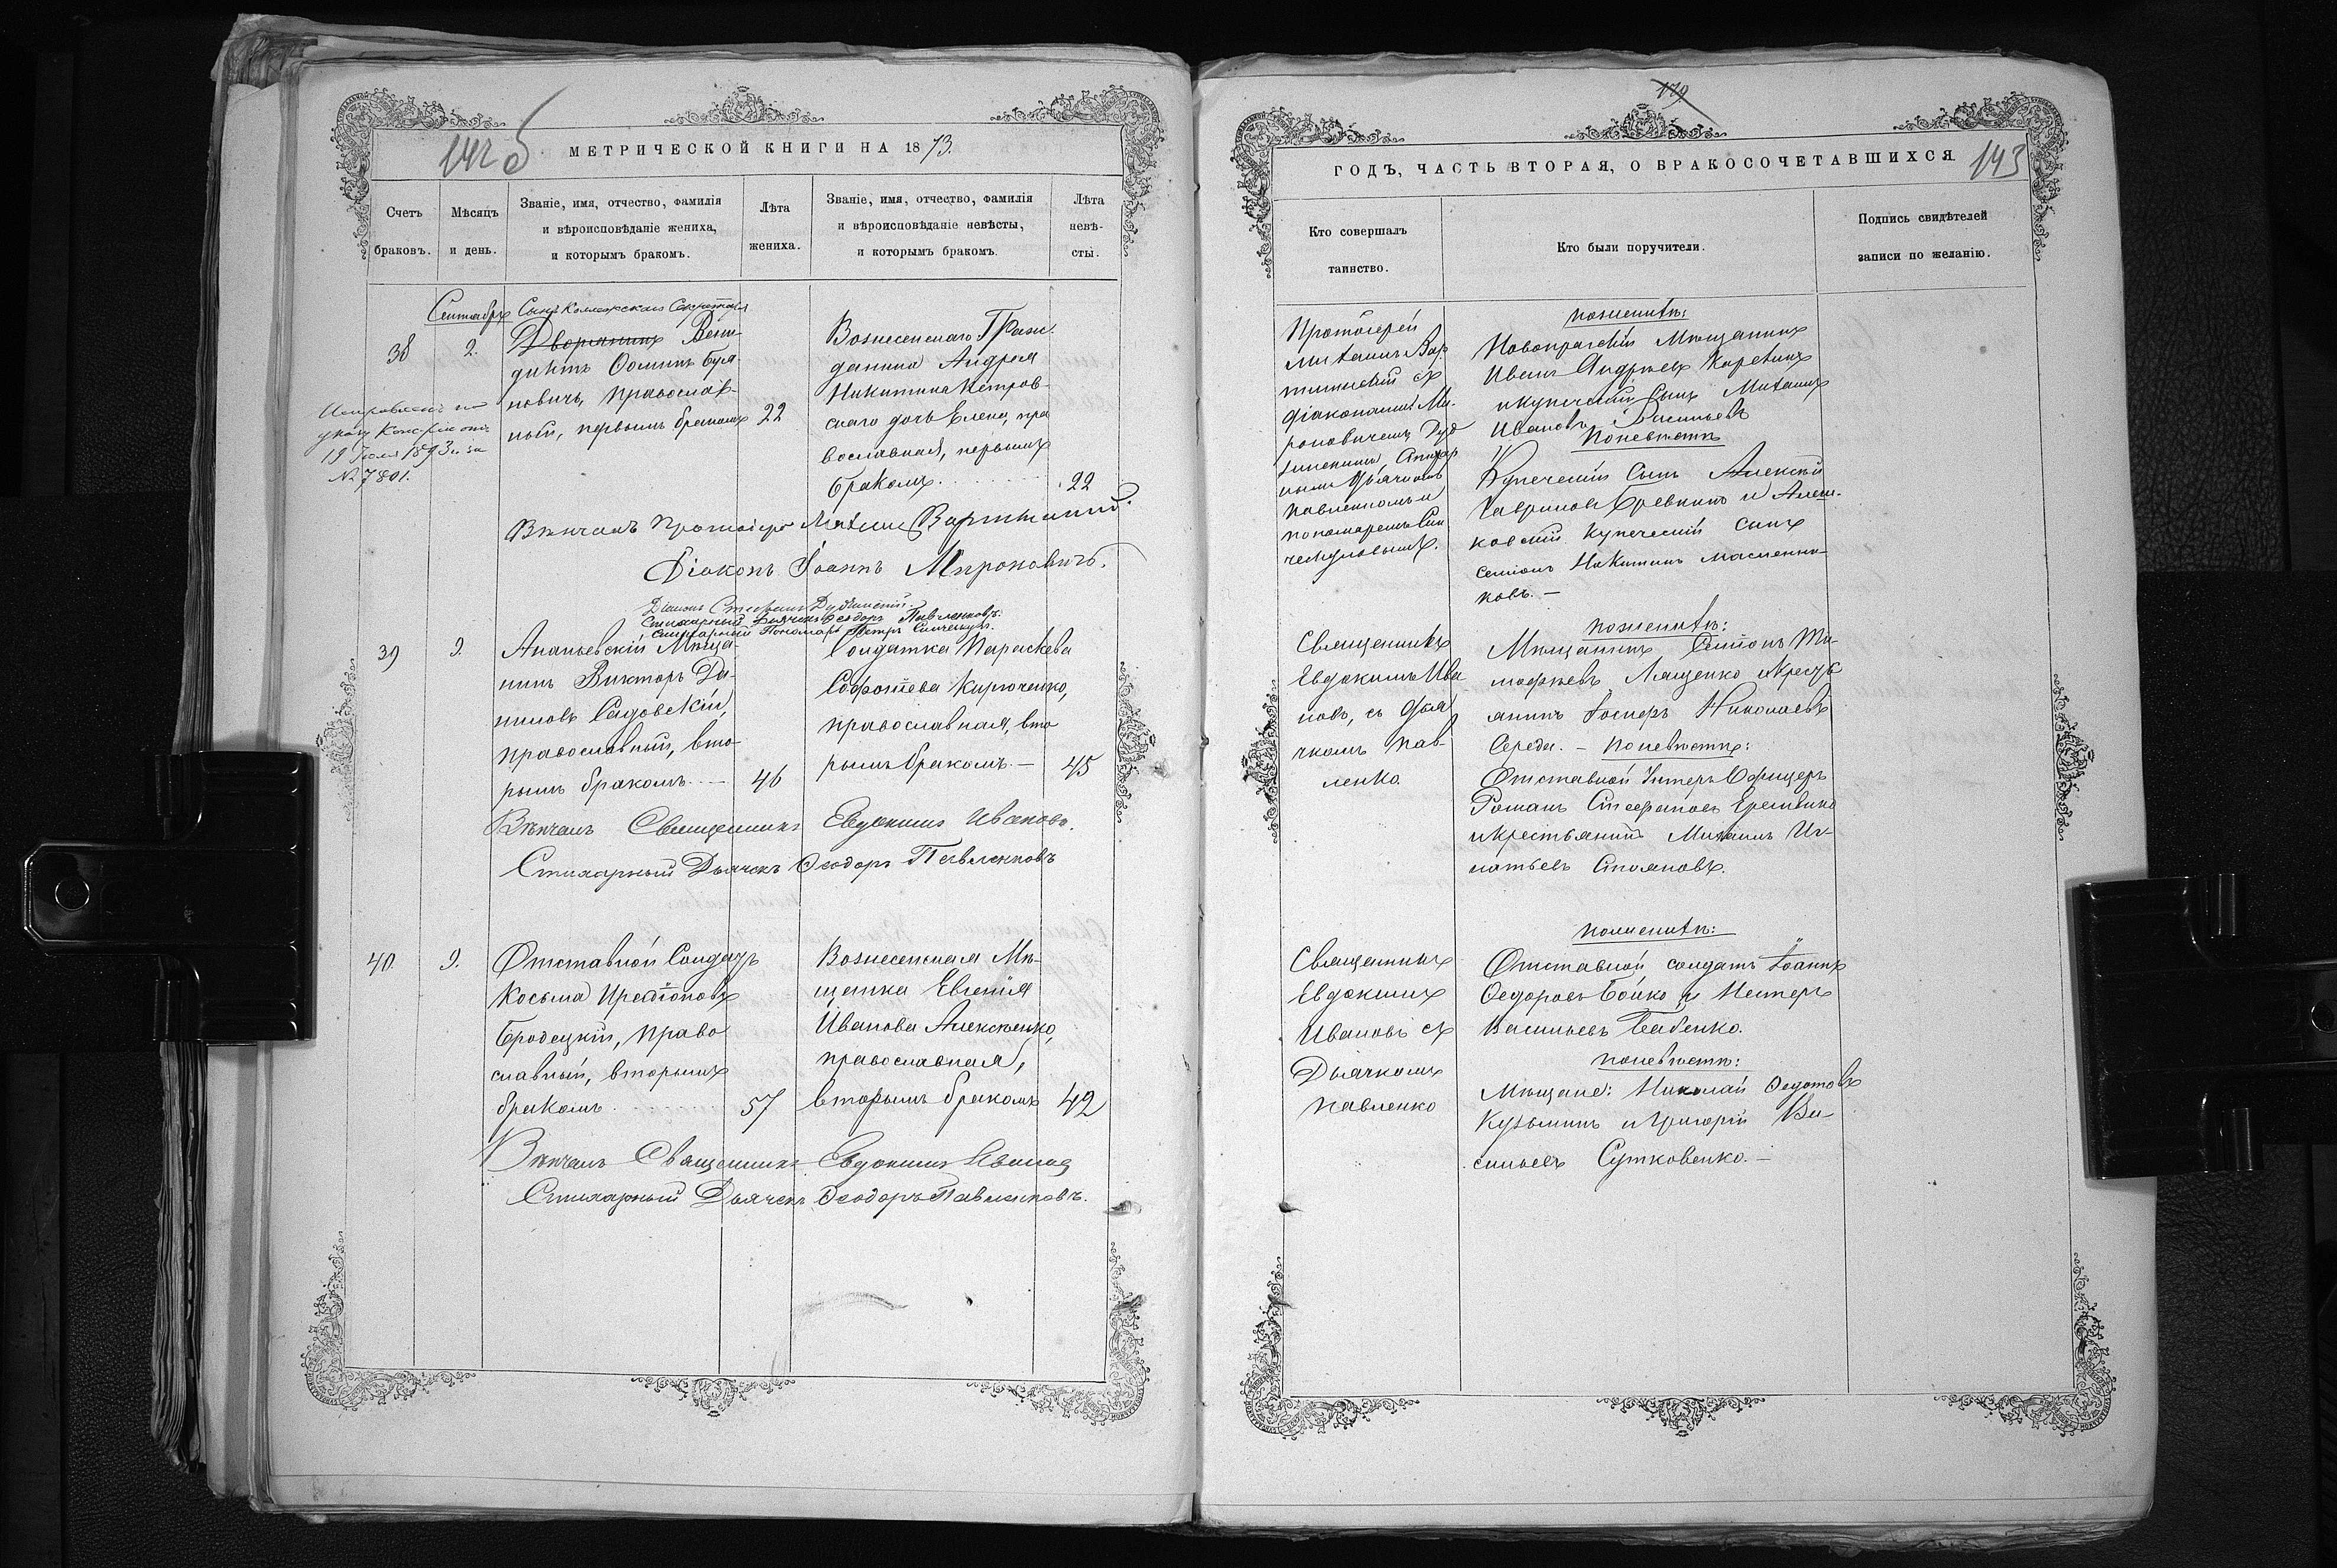 142 б
МЕТРИЧЕСКОЙ КНИГИ НА 1873.
Счетъ браковъ.
Мѣсяцъ и день.
Званіе, имя, отчество, фамилія и вѣроисповѣданіе жениха, и которымъ бракомъ.
Лѣта жениха.
Званіе, имя, отчество, фамилія и вѣроисповѣданіе невѣсты, и которымъ бракомъ.
Лѣта невѣ-сты.
Сентябрь
38
2.
Сынъ Коллежскаго Секретаря
Дворянинъ Вени-
диктъ Ооминъ Буля
новичъ, православ-
ный, первымъ бракомъ
22
Исправлено по
указу Конс-іи отъ
19 Іюля 1893 г. за
№ 7801.
Вознесенскаго Граж-
данина Андрея
Никитина Петров-
скаго дочь Елена, пра
вославная, первымъ
бракомъ.
22
Вѣнчалъ Протоіерей Михаилъ Вартминскій.
Діаконъ Іоаннъ Мироновичъ.
Діаконъ Стефанъ Дубинскій.
Стихарный Дьячекъ Ѳеодоръ Павленковъ.
Стихарный Пономарь Петръ
39
9.
Ананьевскій Мѣща-
нинъ Викторъ Да-
ниловъ Садовскій,
православный, вто-
рымъ бракомъ. —
46
Солдатка Параскева
Софотѣева Кирюченко,
православная, вто
рымъ бракомъ. —
45
Вѣнчалъ Священникъ Евдокимъ Ивановъ.
Стихарный Дьячекъ Ѳеодоръ Павленковъ
40.
9.
Отставной Солдатъ
Косьма Иродіоновъ
Бродецкій, право
славный, вторымъ
бракомъ
57
Вознесенская Мѣ-
щанка Евгенія
Иванова Алексѣенко,
православная,
вторымъ бракомъ
42
Вѣнчалъ Священникъ Евдокимъ Ивановъ
Стихарный Дьячекъ Ѳеодоръ Павленковъ.
179
ГОДЪ, ЧАСТЬ ВТОРАЯ, О БРАКОСОЧЕТАВШИХСЯ.
143
Кто совершалъ таинство.
Кто были поручители.
Подпись свидѣтелей записи по желанію.
Протоіерей
Михаилъ Вар
тминскій съ
діаконами Ми-
роновичемъ, Дуб
инскимъ
Дьячкомъ
Павленкомъ и
пономаремъ Син
по женихѣ:
Новопражскій Мѣщанинъ
Иванъ Андреевъ Каревинъ
и купеческій Сынъ Михаилъ
Ивановъ Васильевъ
По невѣстѣ
Купеческій Сынъ Алексѣй
Гавриловъ Гревнинъ и Алеш-
ковскій Купеческій Сынъ
Семіонъ Никитинъ Масленни-
ковъ. —
Священникъ
Евдокимъ Ива
новъ, съ Дья
чкомъ Пав-
ленко.
по женихѣ:
Мѣщанинъ Семіонъ Ти-
мофѣевъ Лященко и Кресть
янинъ Іосифъ Николаевъ
Середа. — По невѣстѣ:
Отставной Унтеръ Офицеръ
Романъ Стефановъ Еремѣенко
и Крестьянинъ Михаилъ Иг-
натьевъ Стояновъ.
Священникъ
Евдокимъ
Ивановъ съ
Дьячкомъ
Павленко
по женихѣ:
Отставной солдатъ Іоаннъ
Ѳедоровъ Бойко и Нестеръ
Васильевъ Бабенко.
по невѣстѣ:
Мѣщане: Николай Ѳедотовъ
Кузьминъ и Григорій Ва-
сильевъ Сутковенко. —